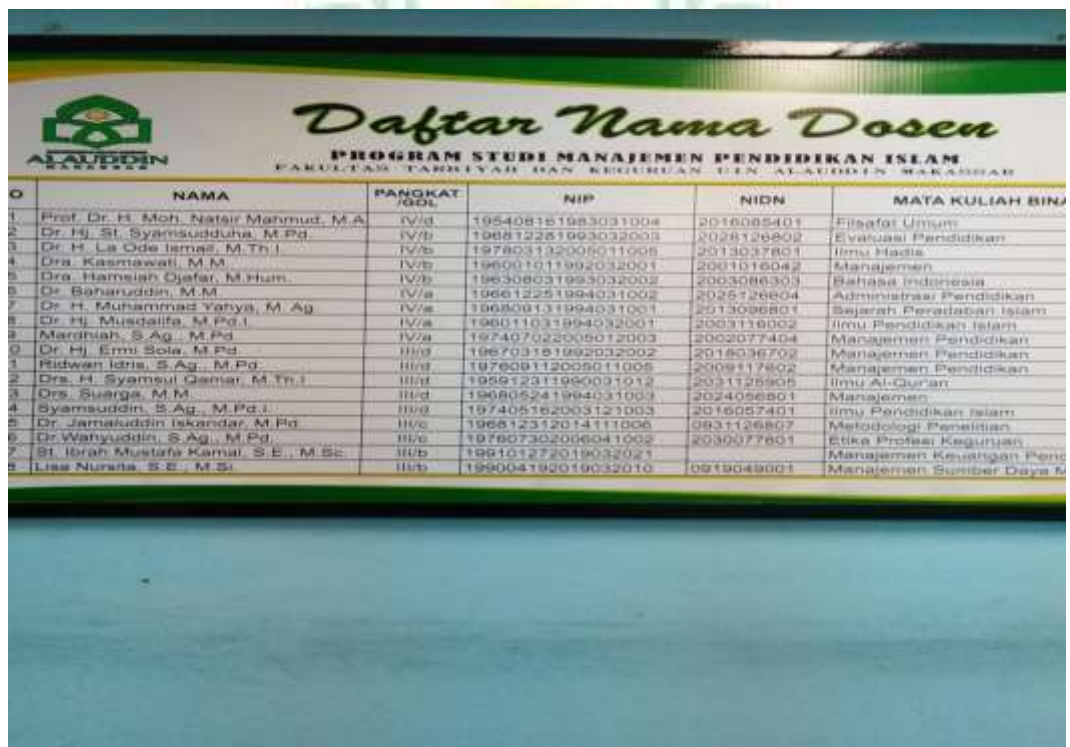 Daftar Nama Dosen
ALAUDDIN
MAKASSAR
PROGRAM STUDI MANAJEMEN PENDIDIKAN ISLAM
FAKULTAS TARBIYAH DAN KEGURUAN UIN ALAUDDIN MAKASSAR
O NAMA PANGKAT /GOL NIP NIDN MATA KULIAH BINA
1 Prof. Dr. H. Moh. Natsir Mahmud, M.A IV/d 195408161983031004 2016085401 Filsafat Umum
2 Dr. Hj. St. Syamsudduha, M.Pd. IV/b 196812281993032003 2028126802 Evaluasi Pendidikan
3 Dr. H. La Ode Ismail, M.Th.I IV/b 197803132005011005 2013037801 Ilmu Hadis
4 Dra. Kasmawati, M.M. IV/b 196001011992032001 2001016042 Manajemen
5 Dra. Hamsiah Djafar, M.Hum. IV/b 196308031993032002 2003086303 Bahasa Indonesia
6 Dr. Baharuddin, M.M. IV/a 196612251994031002 2025126604 Administrasi Pendidikan
7 Dr. H. Muhammad Yahya, M. Ag IV/a 196809131994031001 2013096801 Sejarah Peradaban Islam
8 Dr. Hj. Musdalifa, M.Pd.I. IV/a 196011031994032001 2003116002 Ilmu Pendidikan Islam
9 Mardhiah, S.Ag., M.Pd IV/a 197407022005012003 2002077404 Manajemen Pendidikan
0 Dr. Hj. Ermi Sola, M.Pd. III/d 196703181992032002 2018036702 Manajemen Pendidikan
1 Ridwan Idris, S.Ag., M.Pd. III/d 197609112005011005 2009117602 Manajemen Pendidikan
2 Drs. H. Syamsul Qamar, M.Th.I III/d 195912311990031012 2031125905 Ilmu Al-Qur'an
3 Drs. Suarga, M.M. III/d 196805241994031003 2024056801 Manajemen
4 Syamsuddin, S.Ag., M.Pd.I. III/d 197405162003121003 2016057401 Ilmu Pendidikan Islam
5 Dr. Jamaluddin Iskandar, M.Pd. III/c 196812312014111006 0931126807 Metodologi Penelitian
6 Dr. Wahyuddin, S.Ag., M.Pd. III/c 197607302006041002 2030077601 Etika Profesi Keguruan
7 St. Ibrah Mustafa Kamal, S.E., M.Sc III/b 199101272019032021 Manajemen Keuangan Pend
8 Lisa Nursita, S.E., M.Si. III/b 199004192019032010 0919049001 Manajemen Sumber Daya M